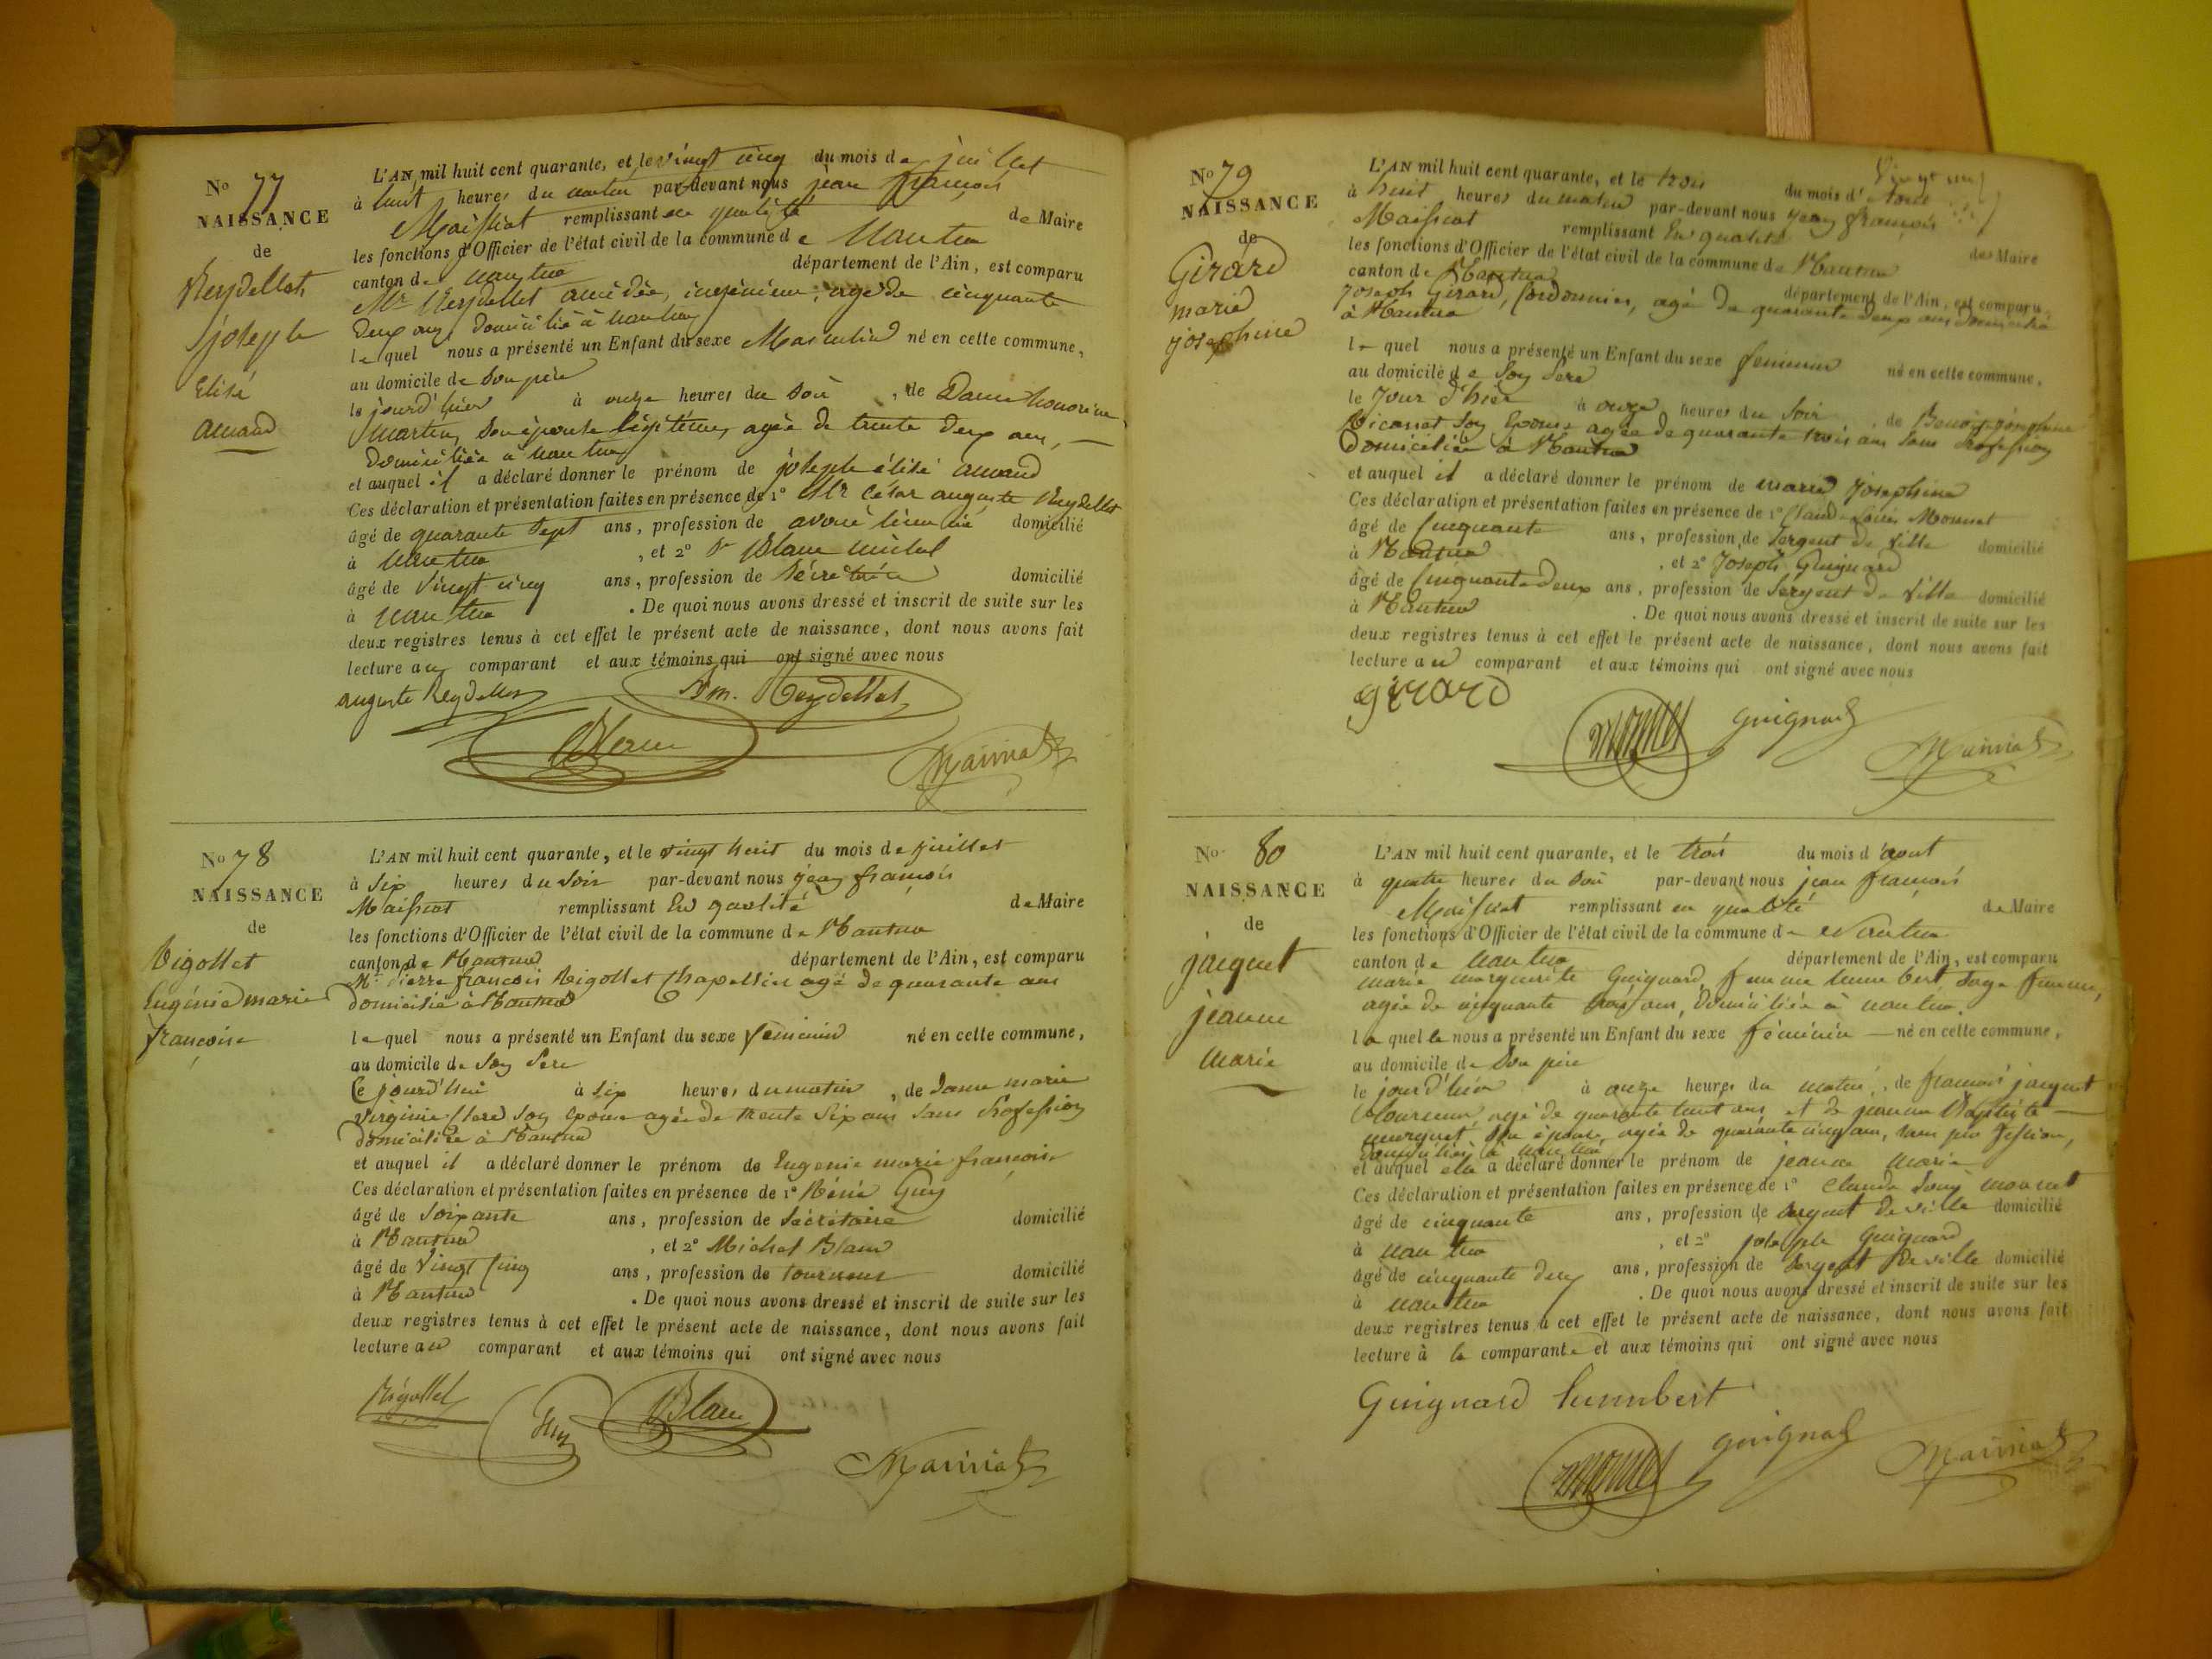 No 77
NAISSANCE
de
Reydellet
joseph
Elisé
amand
L'AN mil huit cent quarante, et le vingt cinq du mois de juillet
à huit heures du matin par-devant nous jean françois
Maissiat remplissant en qualité de Maire
les fonctions d'Officier de l'état civil de la commune de Nantua
canton de nantua département de l'Ain, est comparu
Mr Reydellet amédée, ingénieur, agé de cinquante
deux ans, domicilié à nantua
lequel nous a présenté un Enfant du sexe Masculin né en cette commune,
au domicile de son père
le jourd'hier à onze heures du soir, de Dame honorine
martin, son épouse légitime, agée de trente deux ans,
domiciliée à nantua
et auquel il a déclaré donner le prénom de joseph élisé amand
Ces déclaration et présentation faites en présence de 1° Mr César auguste Reydellet
âgé de quarante sept ans, profession de avoué licencié domicilié
à nantua, et 2° Sr Blanc michel
âgé de vingt cinq ans, profession de Secrétaire domicilié
à nantua. De quoi nous avons dressé et inscrit de suite sur les
deux registres tenus à cet effet le présent acte de naissance, dont nous avons fait
lecture au comparant et aux témoins qui ont signé avec nous
auguste Reydellet Am. Reydellet
Blanc Maissiat
No 78
NAISSANCE
de
Rigollet
Eugénie marie
françoise
L'AN mil huit cent quarante, et le vingt huit du mois de juillet
à Six heures du Soir par-devant nous jean françois
Maissiat remplissant En qualité de Maire
les fonctions d'Officier de l'état civil de la commune de Nantua
canton de Nantua département de l'Ain, est comparu
Mr Pierre françois Rigollet Chapellier agé de quarante ans
domicilié à Nantua
lequel nous a présenté un Enfant du sexe feminin né en cette commune,
au domicile de Son Pere
Ce jourd'hui à Six heures du matin, de Dame marie
virginie Son Epouse agée de trente Six ans Sans Profession
domiciliée à Nantua
et auquel il a déclaré donner le prénom de Eugenie marie françoise
Ces déclaration et présentation faites en présence de 1° Guy
âgé de Soixante ans, profession de Sécrétaire domicilié
à Nantua, et 2° Michel Blanc
âgé de Vingt Cinq ans, profession de tourneur domicilié
à Nantua. De quoi nous avons dressé et inscrit de suite sur les
deux registres tenus à cet effet le présent acte de naissance, dont nous avons fait
lecture au comparant et aux témoins qui ont signé avec nous
Rigollet Guy Blanc
Maissiat
No 79
NAISSANCE
de
Girard
marie
josephine
L'AN mil huit cent quarante, et le trois du mois d'Aout
à huit heures du matin par-devant nous jean françois
Maissiat remplissant En qualité de Maire
les fonctions d'Officier de l'état civil de la commune de Nantua
canton de Nantua département de l'Ain, est comparu
Joseph Girard, Cordonnier, agé de quarante deux ans domicilié
à Nantua
lequel nous a présenté un Enfant du sexe feminin né en cette commune,
au domicile de Son Pere
le Jour d'hier à onze heures du Soir, de Benoit Josephine
Son Epouse agée de quarante trois ans Sans Profession
Domiciliée à Nantua
et auquel il a déclaré donner le prénom de marie Josephine
Ces déclaration et présentation faites en présence de 1° Claude Louis Monnet
âgé de Cinquante ans, profession de Sergent de Ville domicilié
à Nantua, et 2° Joseph Guignard
âgé de Cinquante deux ans, profession de Sergent de Ville domicilié
à Nantua. De quoi nous avons dressé et inscrit de suite sur les
deux registres tenus à cet effet le présent acte de naissance, dont nous avons fait
lecture au comparant et aux témoins qui ont signé avec nous
girard
Monnet guignard Maissiat
No 80
NAISSANCE
de
jacquet
jeanne
marie
L'AN mil huit cent quarante, et le trois du mois d'aout
à quatre heures du soir par-devant nous jean françois
Maissiat remplissant en qualité de Maire
les fonctions d'Officier de l'état civil de la commune de Nantua
canton de nantua département de l'Ain, est comparu
marie marguerite Guignard, femme humbert, sage femme,
agée de cinquante trois ans, domiciliée à nantua.
laquelle nous a présenté un Enfant du sexe féminin né en cette commune,
au domicile de son père
le jourd'hier à onze heures du matin, de françois jacquet
agé de quarante huit ans, et de jeanne Baptiste
son épouse, agée de quarante cinq ans, sans profession,
domiciliés à nantua
et auquel elle a déclaré donner le prénom de jeanne marie
Ces déclaration et présentation faites en présence de 1° Claude Louis monnet
âgé de cinquante ans, profession de sergent de ville domicilié
à nantua, et 2° joseph Guignard
âgé de cinquante deux ans, profession de sergent de ville domicilié
à nantua. De quoi nous avons dressé et inscrit de suite sur les
deux registres tenus à cet effet le présent acte de naissance, dont nous avons fait
lecture à la comparante et aux témoins qui ont signé avec nous
Guignard humbert
Monnet guignard Maissiat